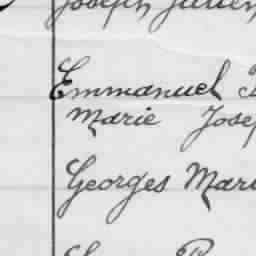 Joseph Julien
Emmanuel
Marie Jose
Georges Mari